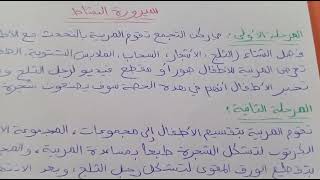 سيرورة النشاط
المرحلة الأولى: في ركن التجمع تقوم المربية بالتحدث مع الأط
فصل الشتاء (الثلج، الأمطار، السحاب، الملابس الشتوية،
تعرض المربية للأطفال صور أو مقطع فيديو لرجل الثلج و
تخبر الأطفال أنهم في هذه الحصة سوف يصنعون شجرة
المرحلة الثانية:
تقوم المربية بتقسيم الأطفال إلى مجموعات، المجموعة الأ
الكرتون لتشكل الشجرة طبعا بمساعدة المربية، والمج
بتقطيع الورق المقوى لتشكل رجل الثلج، وبعد الانت